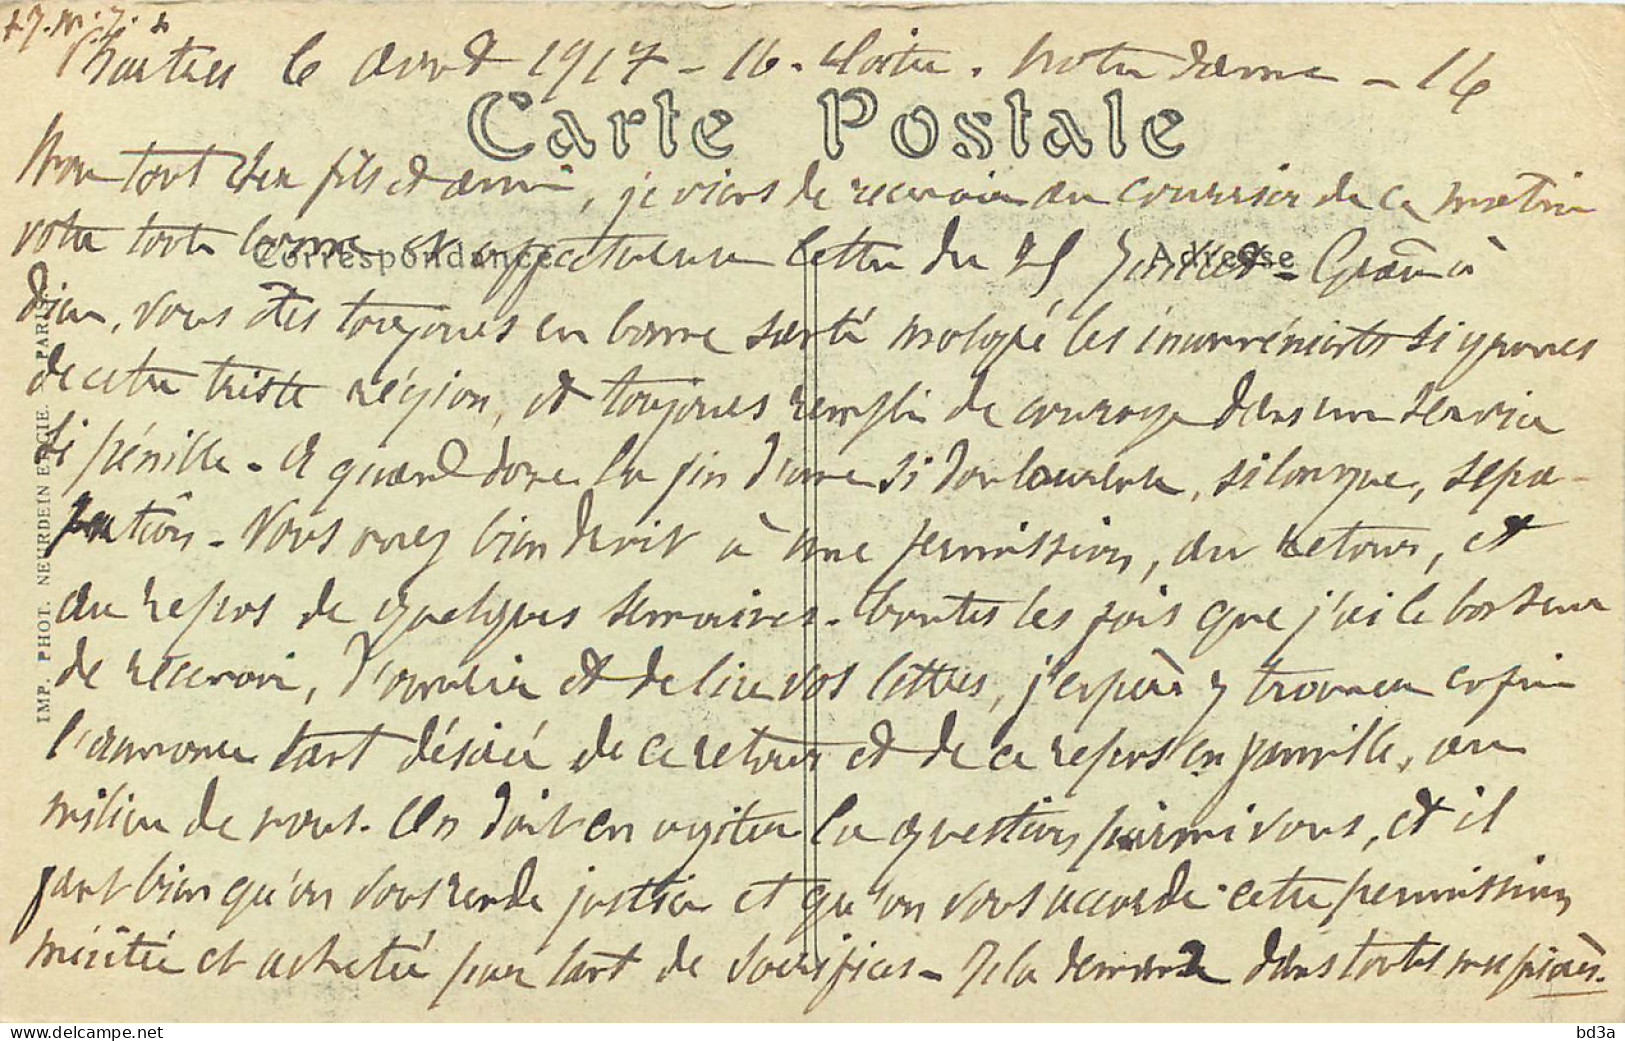 Chartres 6 août 1917 - 16. Cloitre. Notre Dame - 16
Carte Postale
Mon tout cher fils et ami, je viens de recevoir au courrier de ce matin
votre toute bonne et affectueuse lettre du 25 Juillet - Grâce à
Correspondance Adresse
Dieu, vous êtes toujours en bonne santé malgré les inconvénients si graves
de cette triste région, et toujours rempli de courage dans un service
si pénible - A quand donc la fin d'une si douloureuse, si longue, sépa-
ration - Vous avez bien droit à une permission, au retour, et
au repos de quelques semaines - Toutes les fois que j'ai le bonheur
de recevoir, d'ouvrir et de lire vos lettres, j'espère y trouver enfin
l'annonce tant désirée de ce retour et de ce repos en famille, au
milieu de nous. On doit en agiter la question parmi vous, et il
faut bien qu'on vous rende justice et qu'on vous accorde cette permission
méritée et achetée par tant de sacrifices - Je la demande dans toutes mes prières.
IMP. PHOT. NEURDEIN ET CIE. PARIS.
www.delcampe.net
bd3a